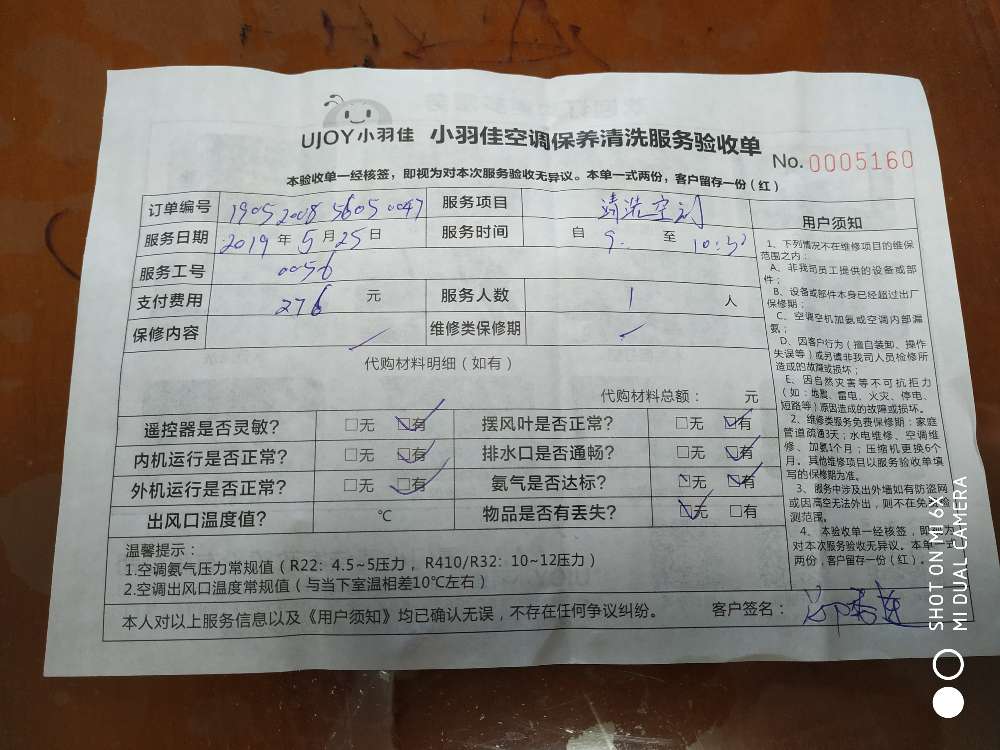 UJOY小羽佳 小羽佳空调保养清洗服务验收单
No.0005160
本验收单一经核签，即视为对本次服务验收无异议。本单一式两份，客户留存一份（红）
订单编号 1905 2008 5605 0047 服务项目 清洗空调
服务日期 2019年5月25日 服务时间 自 9. 至 10:30
服务工号 0056
支付费用 276 元 服务人数 1 人
保修内容 维修类保修期
代购材料明细（如有）
代购材料总额： 元
遥控器是否灵敏？ □无 □有 摆风叶是否正常？ □无 □有
内机运行是否正常？ □无 □有 排水口是否通畅？ □无 □有
外机运行是否正常？ □无 □有 氨气是否达标？ □无 □有
出风口温度值？ ℃ 物品是否有丢失？ □无 □有
温馨提示：
1.空调氨气压力常规值（R22：4.5~5压力，R410/R32：10~12压力）
2.空调出风口温度常规值（与当下室温相差10℃左右）
本人对以上服务信息以及《用户须知》均已确认无误，不存在任何争议纠纷。 客户签名：
用户须知
1、下列情况不在维修项目的维保
范围之内：
A、非我司员工提供的设备或部
件；
B、设备或部件本身已经超过出厂
保修期；
C、空调空机加氨或空调内部漏
氨；
D、因客户行为（擅自装卸、操作
失误等）或另请非我司人员检修所
造成的故障或损坏；
E、因自然灾害等不可抗拒力
（如：地震、雷电、火灾、停电、
短路等）原因造成的故障或损坏。
2、维修类服务免费保修期：家庭
管道疏通3天；水电维修、空调维
修、加氨1个月；压缩机更换6个
月。其他维修项目以服务验收单填
写的保修期为准。
3、服务中涉及出外墙如有防盗网
或因高空无法外出，则不在免检
测范围。
4、本验收单一经核签，即视为
对本次服务验收无异议。本单一式
两份，客户留存一份（红）。
SHOT ON MI 6X
MI DUAL CAMERA